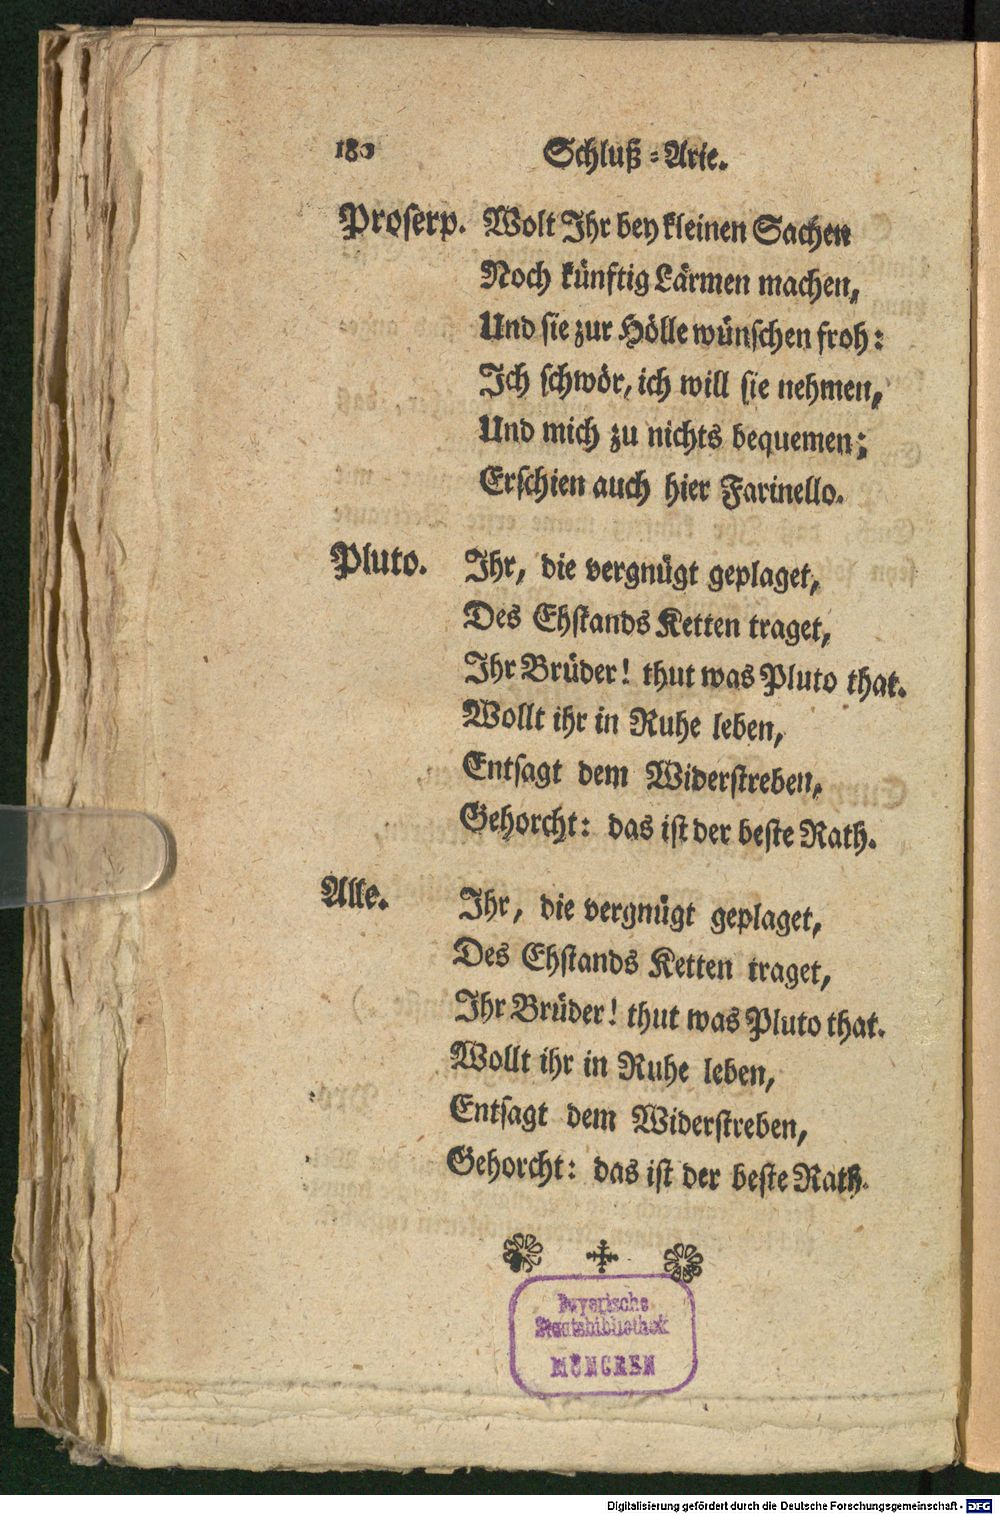 180 Schluß-Arie.
Proserp. Wolt Ihr bey kleinen Sachen
Noch künftig Lärmen machen,
Und sie zur Hölle wünschen froh:
Ich schwör, ich will sie nehmen,
Und mich zu nichts bequemen;
Erschien auch hier Farinello.
Pluto. Ihr, die vergnügt geplaget,
Des Ehstands Ketten traget,
Ihr Brüder! thut was Pluto that.
Wollt ihr in Ruhe leben,
Entsagt dem Widerstreben,
Gehorcht: das ist der beste Rath.
Alle. Ihr, die vergnügt geplaget,
Des Ehstands Ketten traget,
Ihr Brüder! thut was Pluto that.
Wollt ihr in Ruhe leben,
Entsagt dem Widerstreben,
Gehorcht: das ist der beste Rath.
Bayerische
Staatsbibliothek
MÜNCHEN
Digitalisierung gefördert durch die Deutsche Forschungsgemeinschaft - DFG